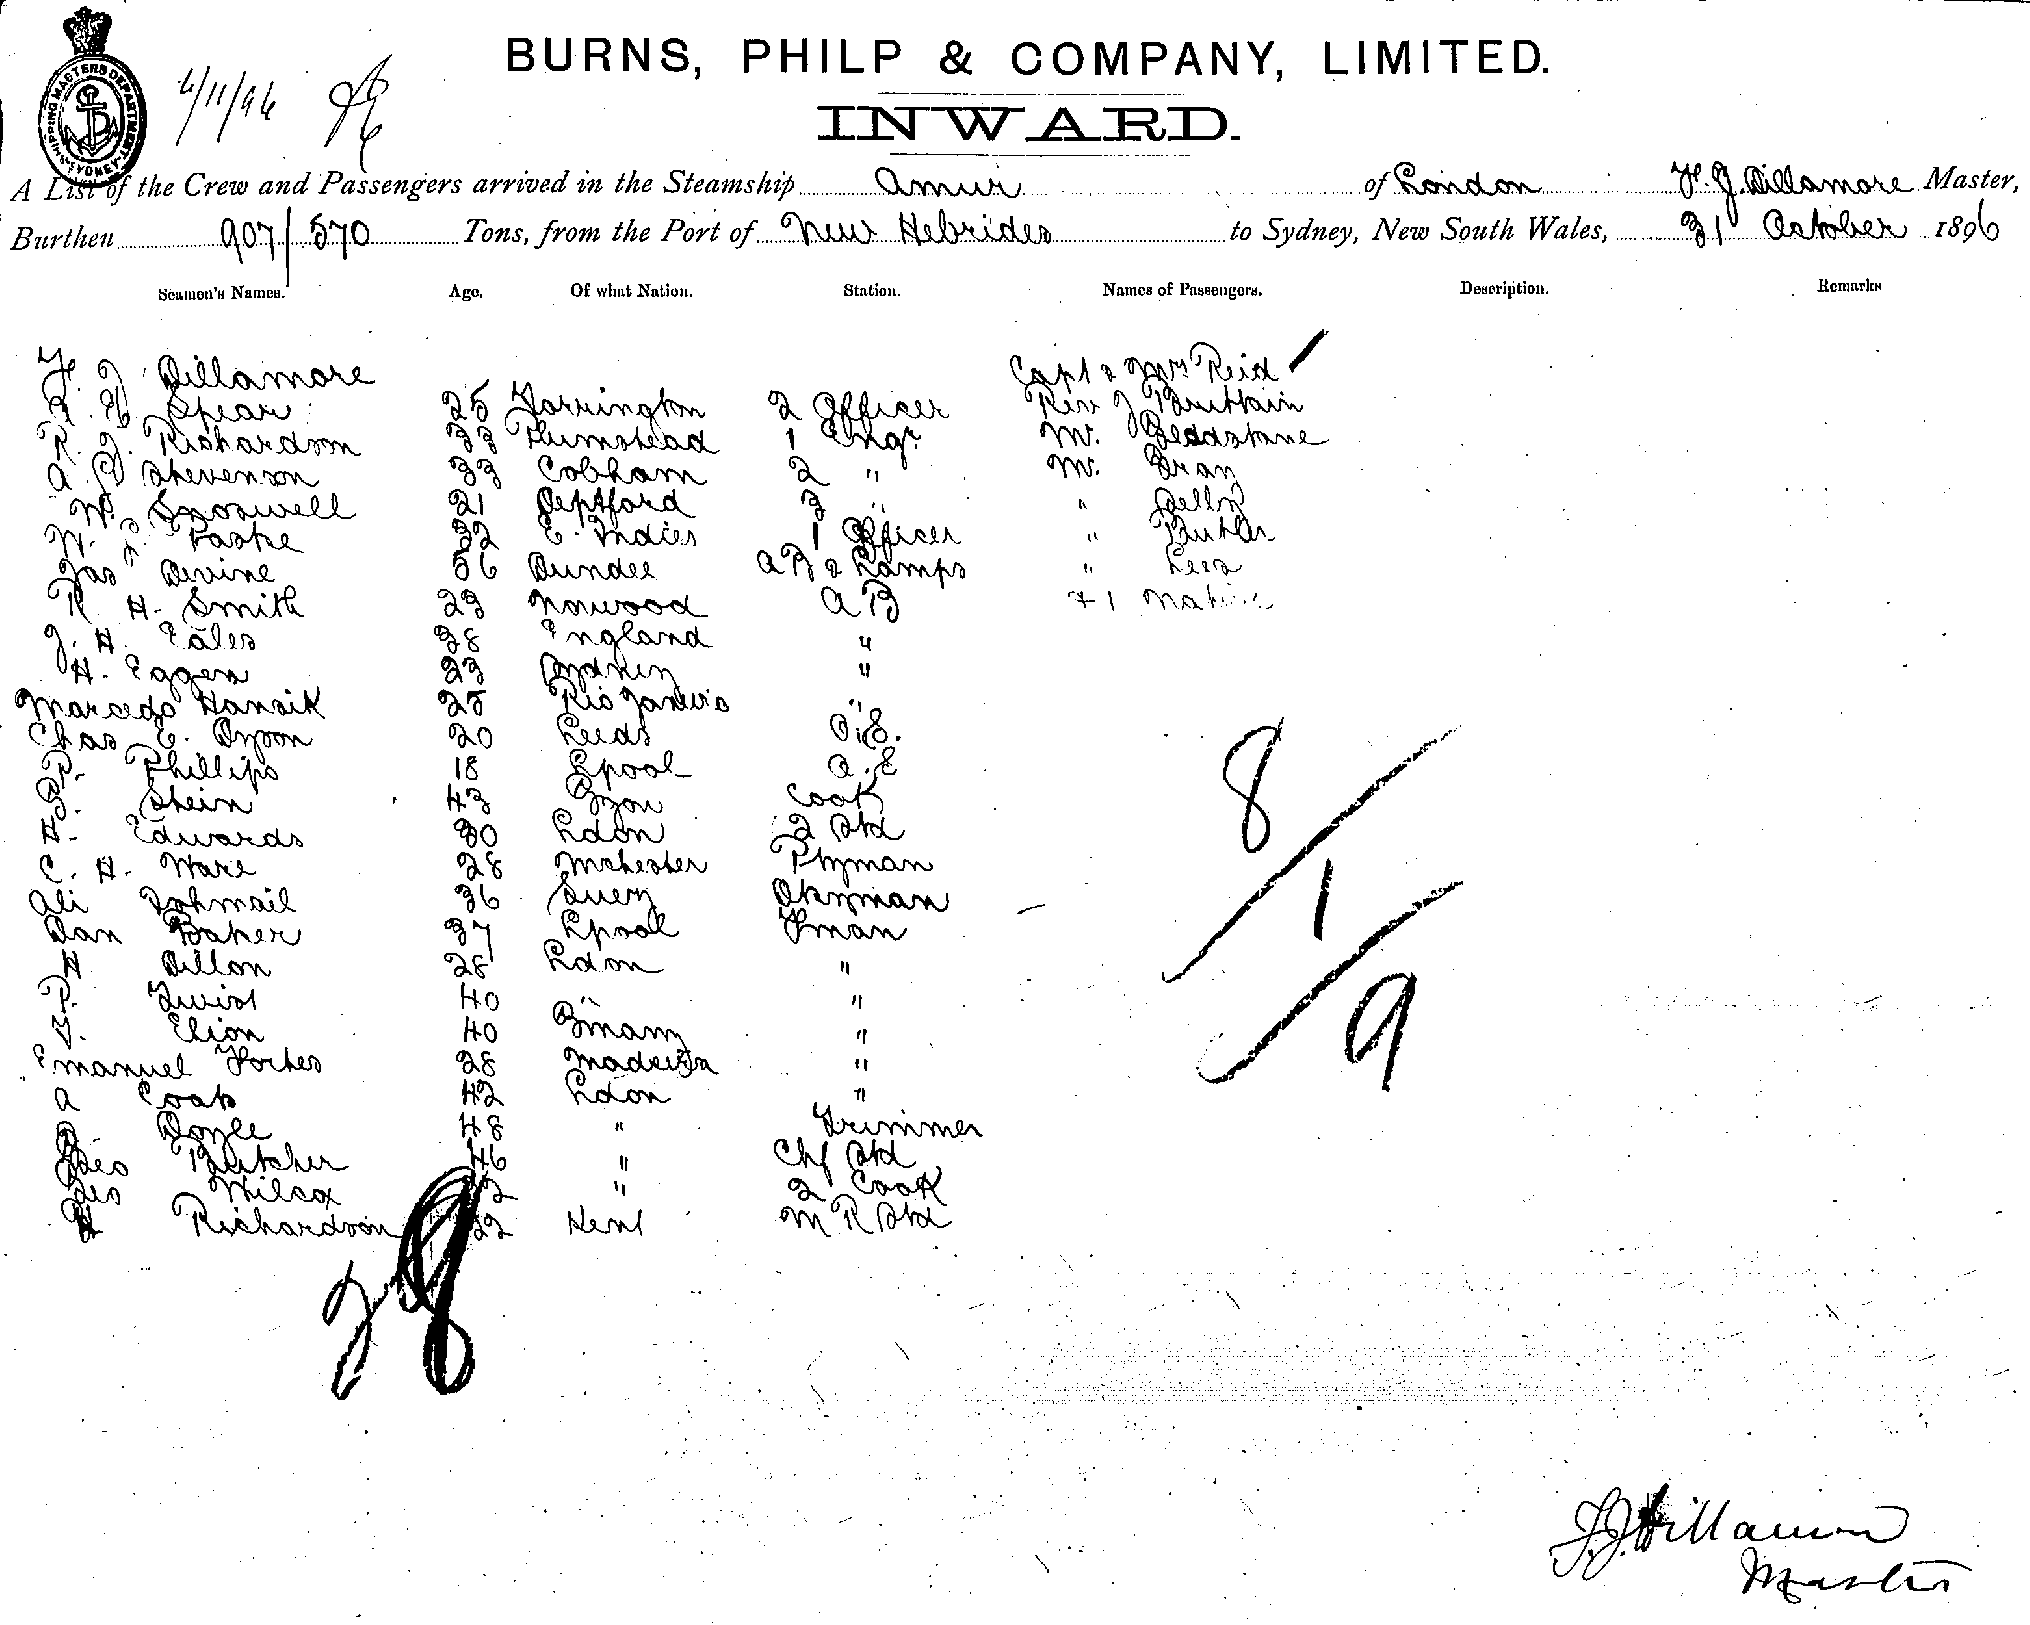 BURNS, PHILP & COMPANY, LIMITED.
SHIPPING MASTERS DEPARTMENT SYDNEY
4/11/96
INWARD.
A List of the Crew and Passengers arrived in the Steamship Amur of London F. J. Dillamore Master,
Burthen 907/570 Tons, from the Port of New Hebrides to Sydney, New South Wales, 31 October 1896
Seamen's Names. Age. Of what Nation. Station. Names of Passengers. Description. Remarks
F. J. Dillamore Capt & Mrs Reid
Spear 25 Torrington 2 Officer Rev J Brittain
R. J. Richardson 33 Plumstead 1 Engr Mr. Gladstone
A Stevenson 33 Cobham 2 " Mr. Gray
W. Snoswell 21 Deptford 3 "
W. Paske 32 E. Indies 1 Officer " Butler
Jas Devine 56 Dundee AB & Lamps " Lees
R H. Smith 23 Norwood AB + 1 Native
J. H. Eales 28 England "
H. Eggers 23 Sydney "
Marcedo Hansik 25 Rio Janeiro "
Chas E. Dyson 20 Leeds O.S.
P. Phillips 18 Lpool
B. Stein 43 Cook
H. Edwards 30 Ldon 2 Std
C. H. Ware 28 Mchester Ptyman
Ali Ishmail 36 Suez Dkyman
Dan Baker 37 Lpool Fman
H Dillon 28 Ldon "
P. Twist 40 " "
Elion 40 Gmany "
Emanuel Fortes 28 Madeira "
A Coats 42 Ldon "
Doyle 48 " Trimmer
Geo Butcher 46 " Chf Std
Geo Wilcox " 2 Cook
H Richardson 22 Kent M R Std
8/1/9
F. J. Dillamore
Master